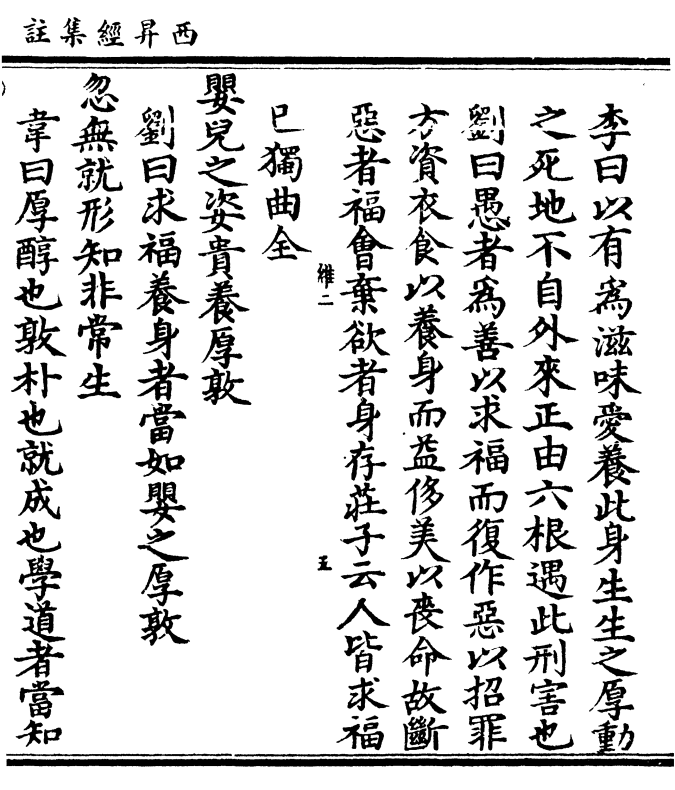 西昇經集註
李曰以有爲滋味愛養此身生生之厚動
之死地不自外來正由六根遇此刑害也
劉曰愚者爲善以求福而復作惡以招罪
方資衣食以養身而益侈美以喪命故斷
惡者福會棄欲者身存莊子云人皆求福
維二 五
已獨曲全
嬰兒之姿貴養厚敦
劉曰求福養身者當如嬰之厚敦
忽無就形知非常生
韋曰厚醇也敦朴也就成也學道者當知